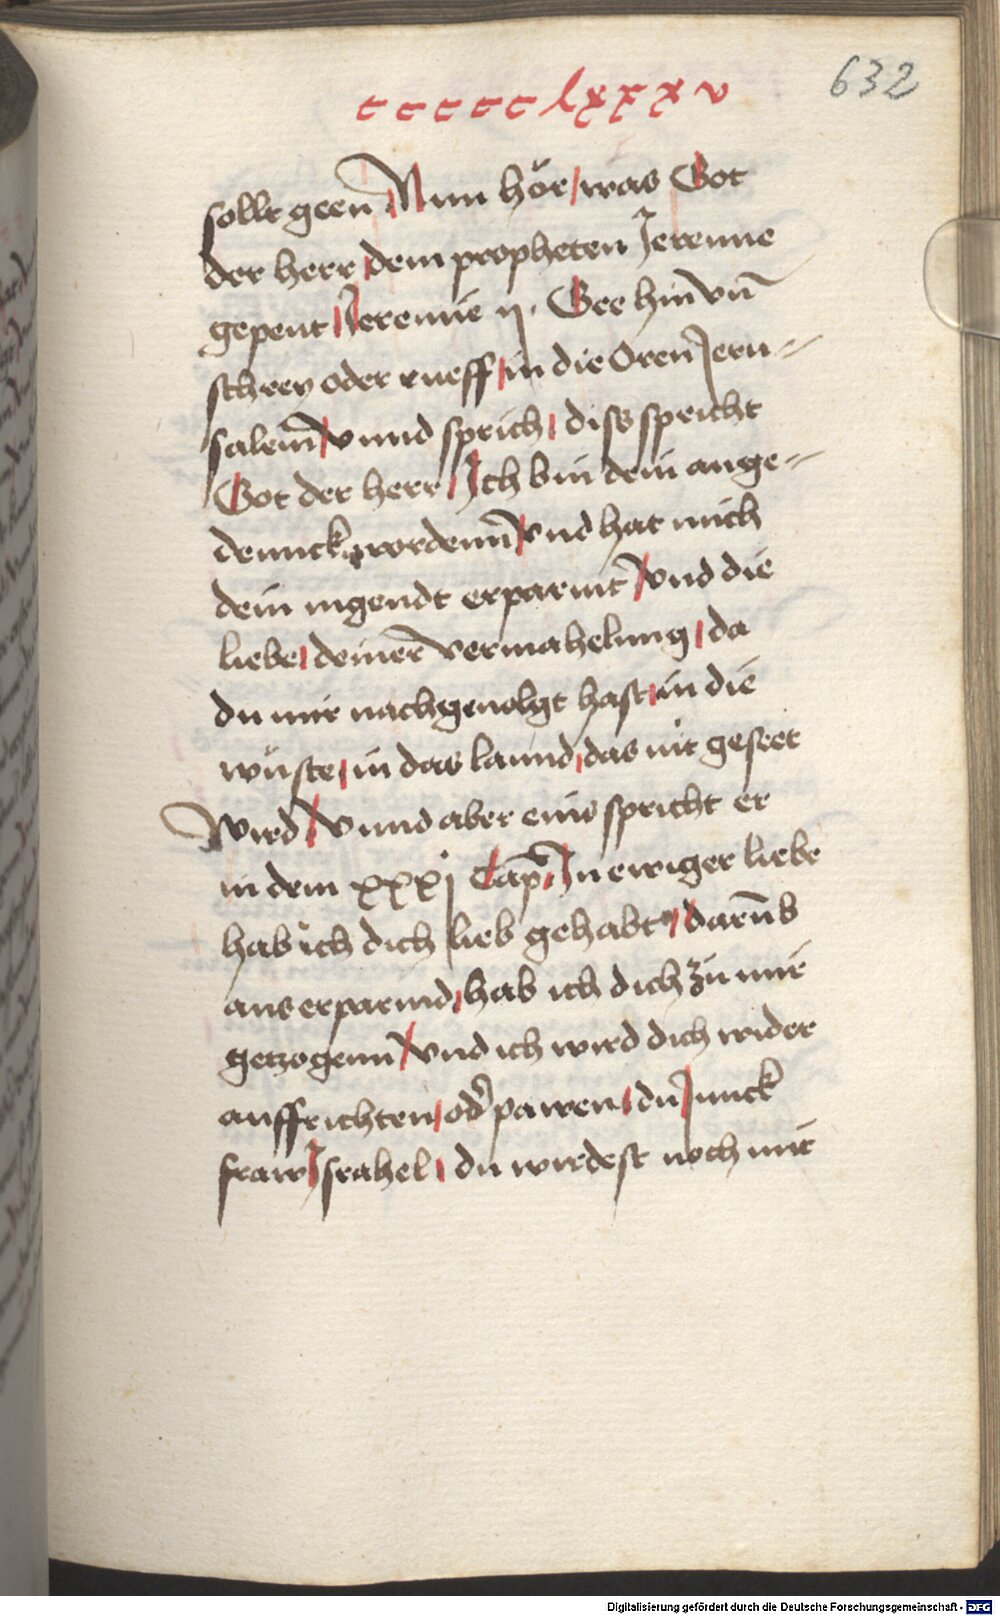 632
ccccclxxxv
sollt geen̄ / Nun hör / was Got
der herr / dem propheten Jeremie
gepeut / Jeremie ij. Gee hin vn̄
schrey oder rueff / in die Oren Jeru-
salem̄ / vnnd sprich / diss spricht
Got der herr / Ich bin dein ange-
denck wordenn / vnd hat mich
dein iugendt erparmt / vnd die
liebe / deiner vermahelung / da
du mir nachgeuolgt hast / in die
wüste / in das lannd / das nit geseet
wird / Vnnd aber eins spricht er
in dem xxxj Cap̄. / In ewiger liebe
hab ich dich lieb gehabt / darūb
aus erparmd / hab ich dich zu mir
getzogenn / vnd ich wird dich wider
auffrichten / od' pawen / du Junck
fraw Israhel / du wirdest noch mit
Digitalisierung gefördert durch die Deutsche Forschungsgemeinschaft - DFG